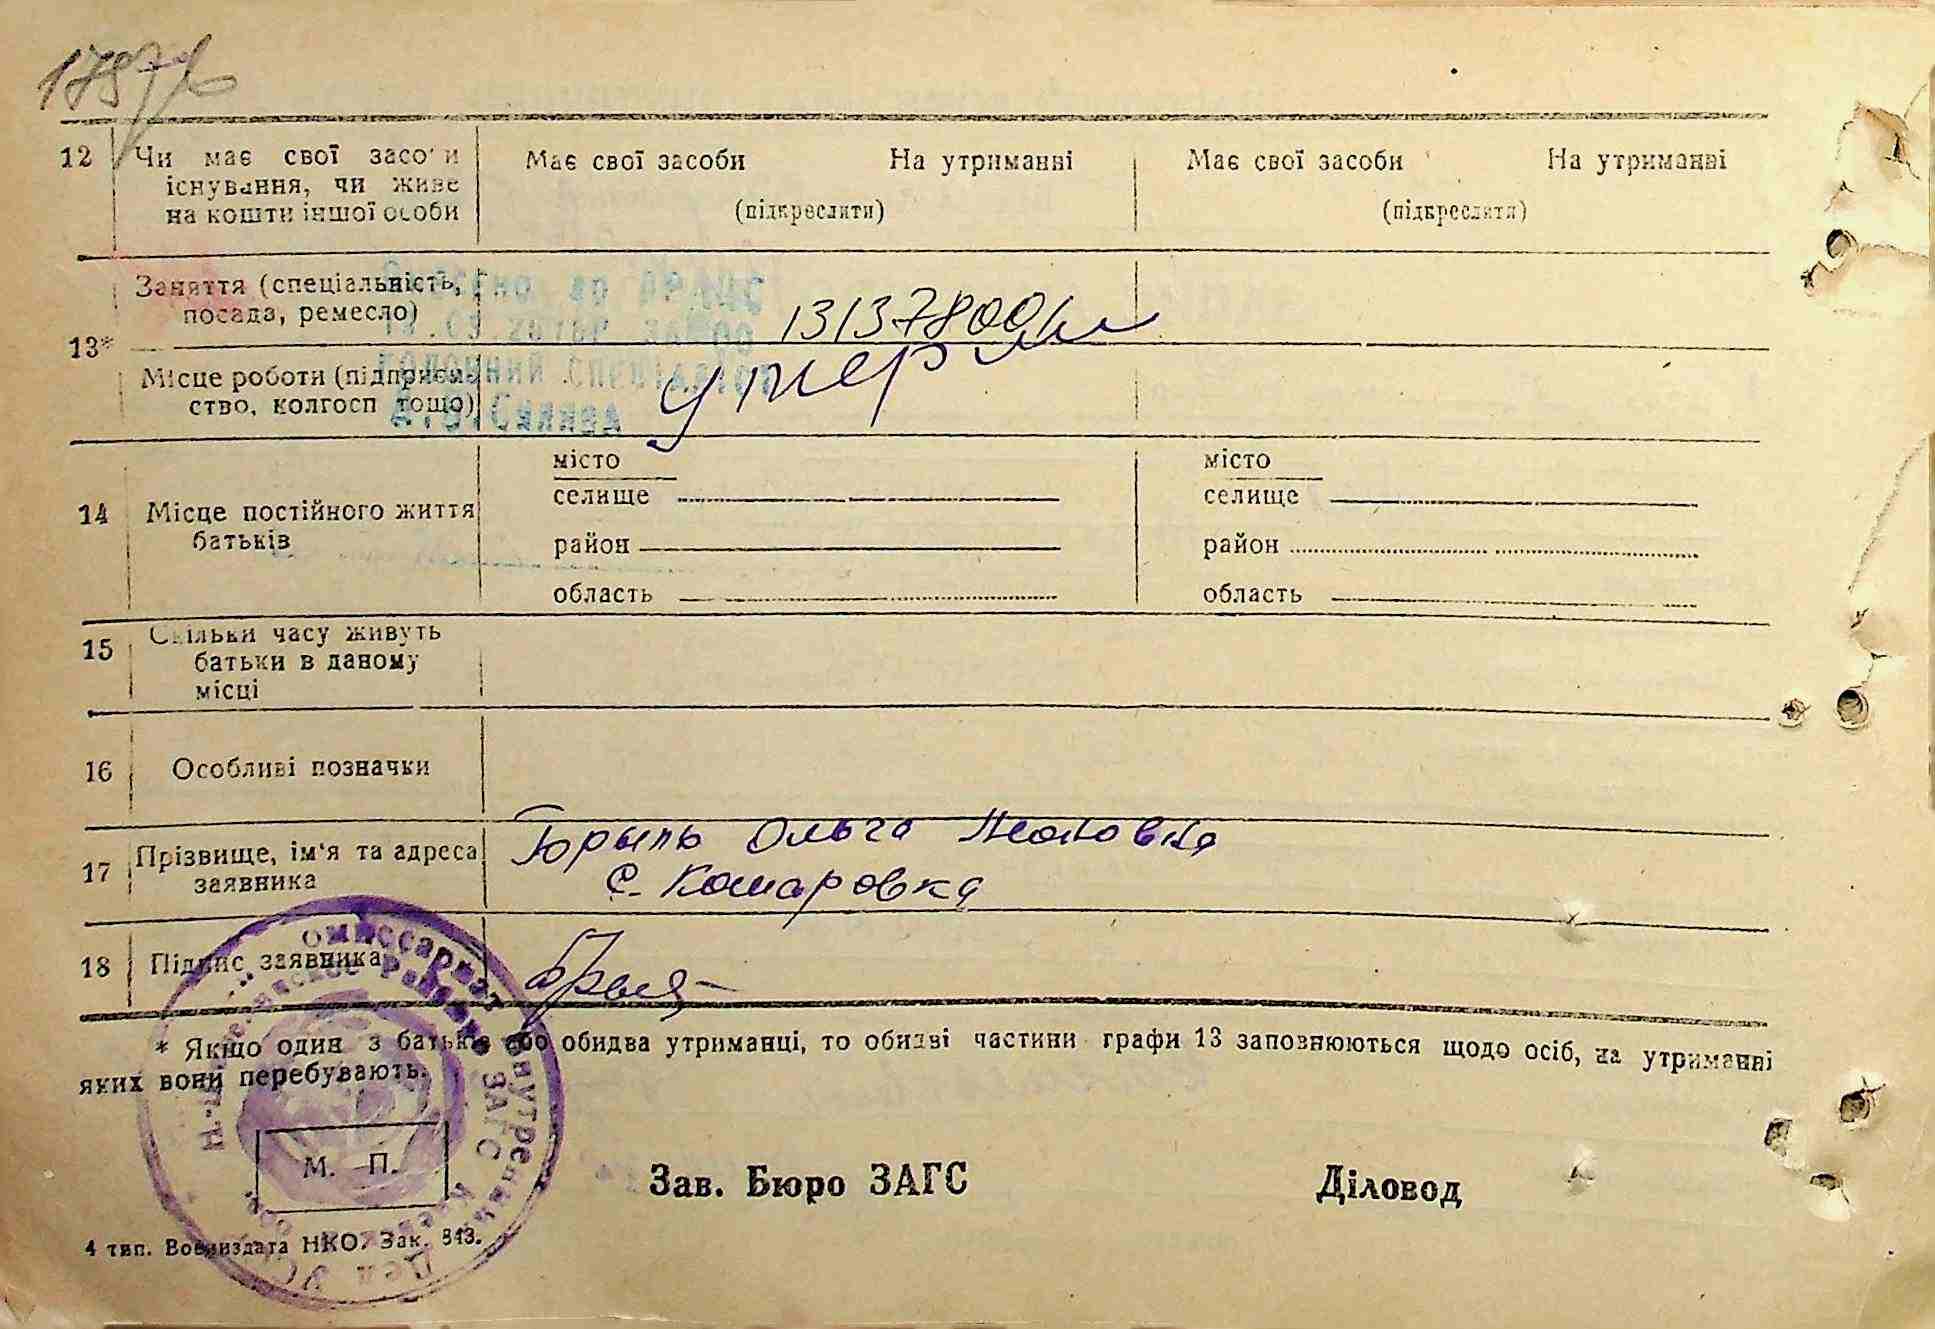 12
Чи має свої засоби
існування, чи живе
на кошти іншої особи
Має свої засоби На утриманні
(підкреслити)
Має свої засоби На утриманні
(підкреслити)
13*
Заняття (спеціальність,
посада, ремесло)
Місце роботи (підприєм-
ство, колгосп тощо)
умер
14
Місце постійного життя
батьків
місто
селище
район
область
місто
селище
район
область
15
Скільки часу живуть
батьки в даному
місці
16
Особливі позначки
17
Прізвище, ім'я та адреса
заявника
Ольга
с. Комаровка
18
Підпис заявника
* Якщо один з батьків або обидва утриманці, то обидві частини графи 13 заповнюються щодо осіб, на утриманні
яких вони перебувають.
М. П.
Зав. Бюро ЗАГС Діловод
4 тип. Воениздата НКО. Зак. 843.